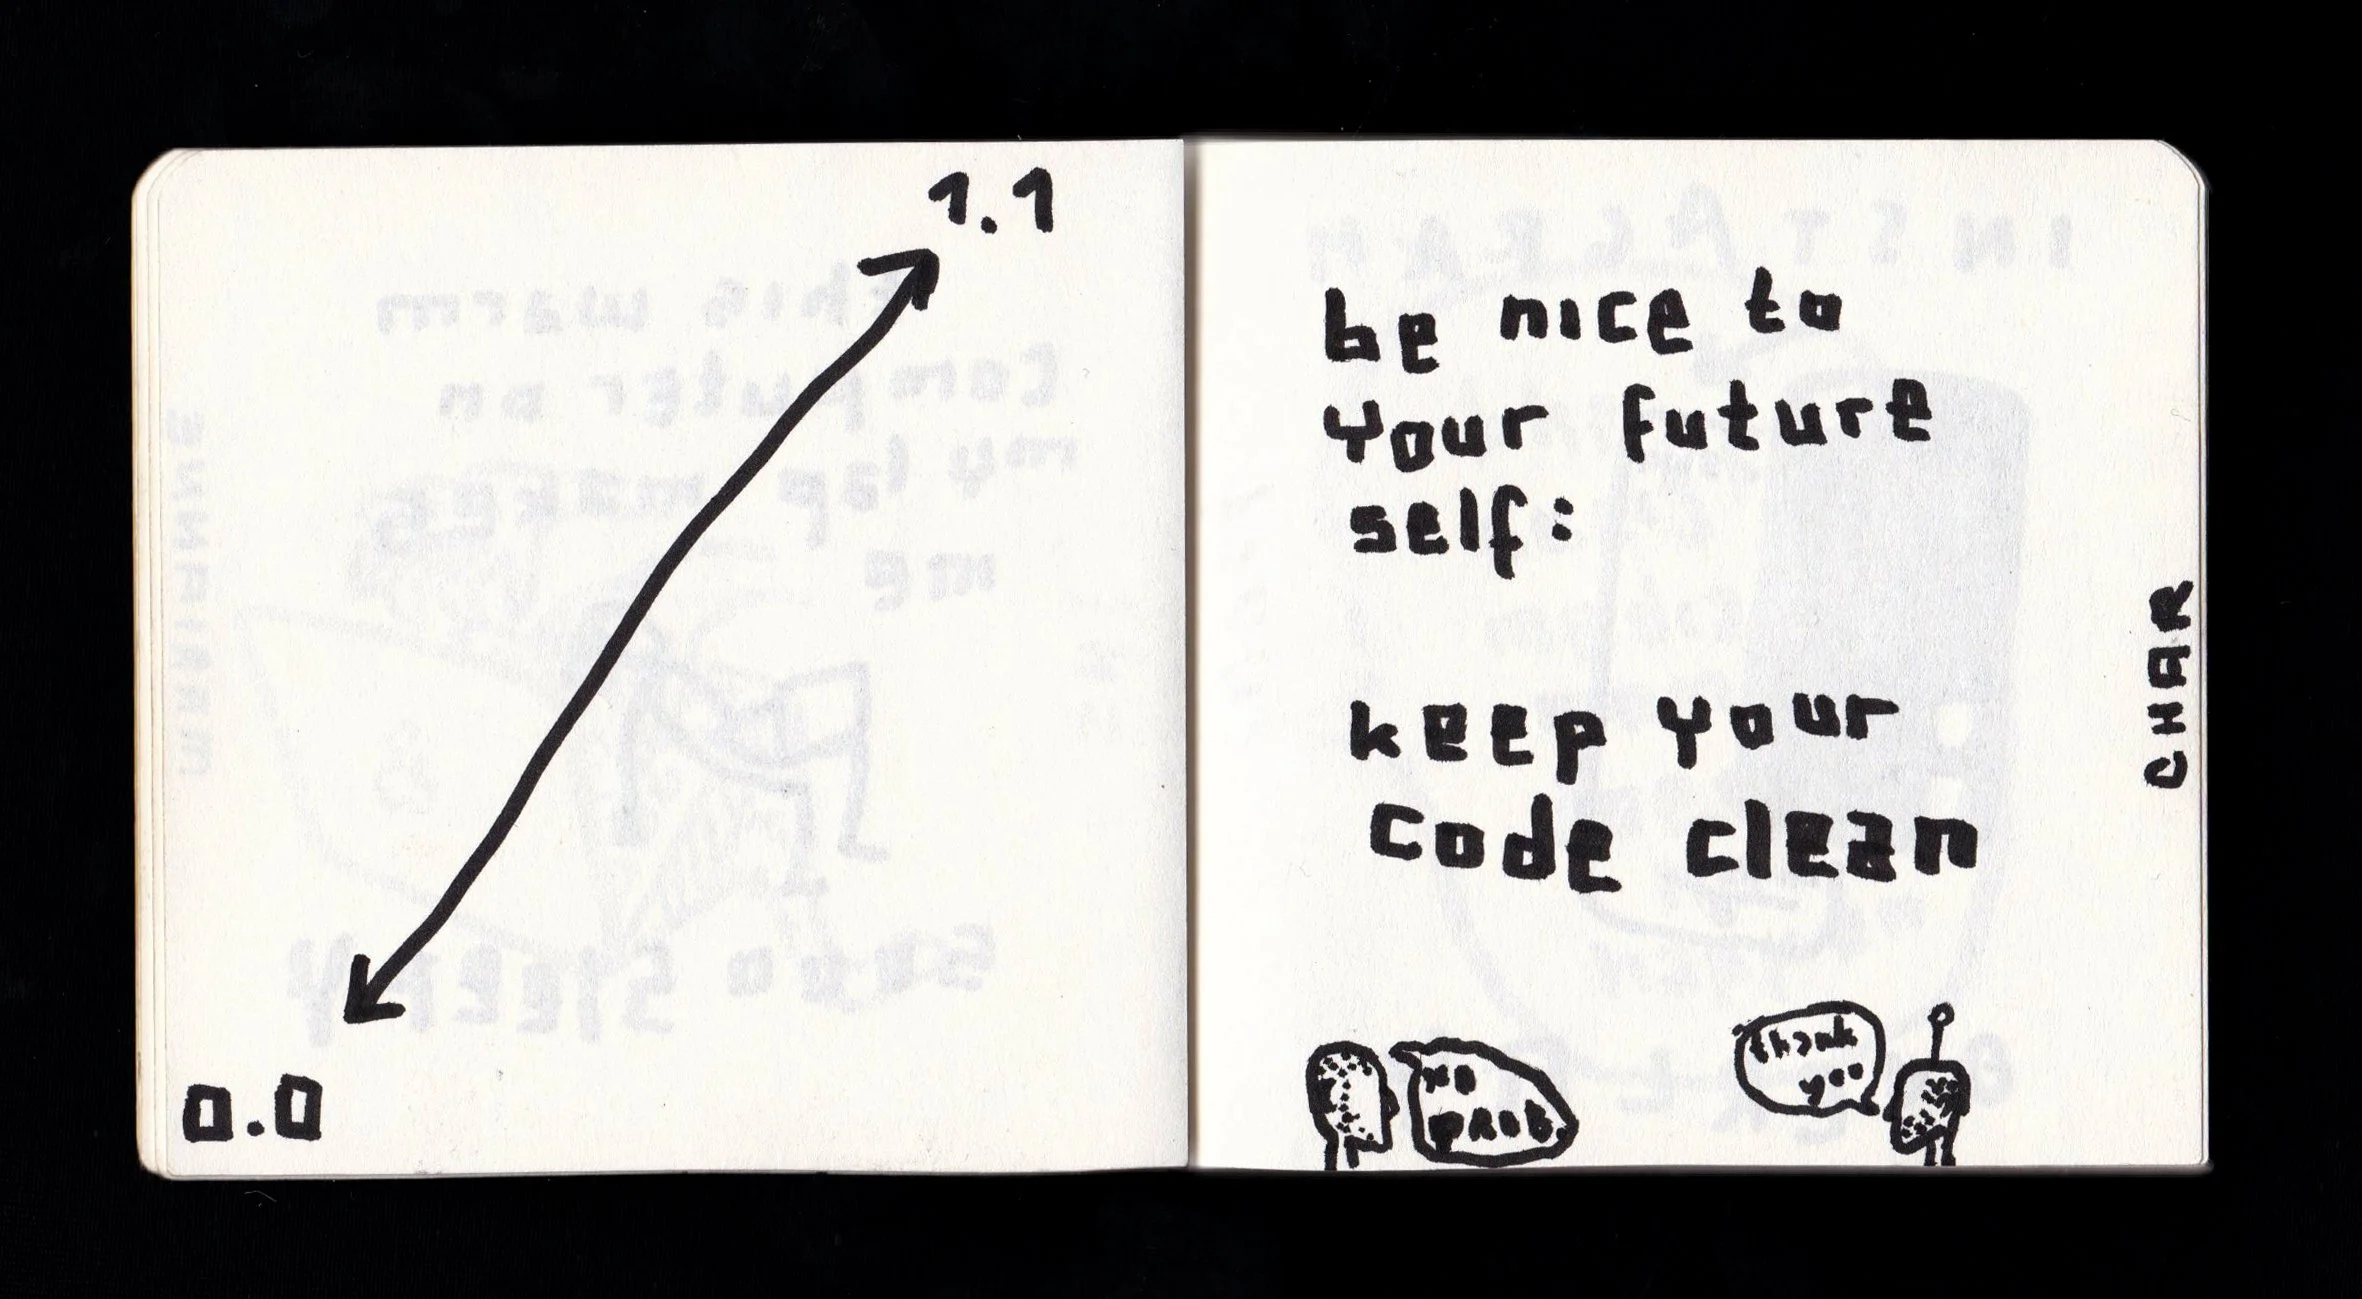 1.1
0.0
be nice to
your future
self:
keep your
code clean
CHAR
no
prob.
thank
you